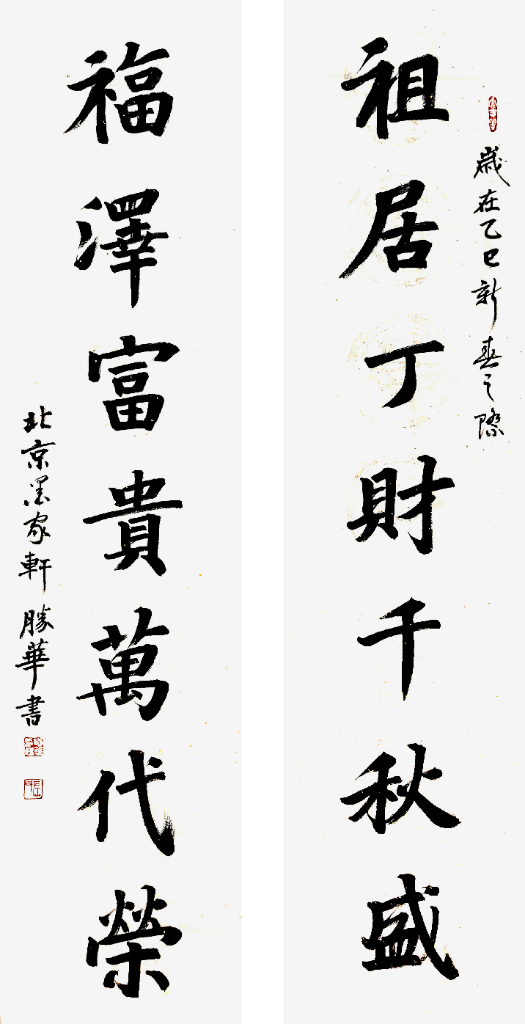 歲在乙巳新春之際
祖居丁財千秋盛
福澤富貴萬代榮
北京墨家軒勝華書